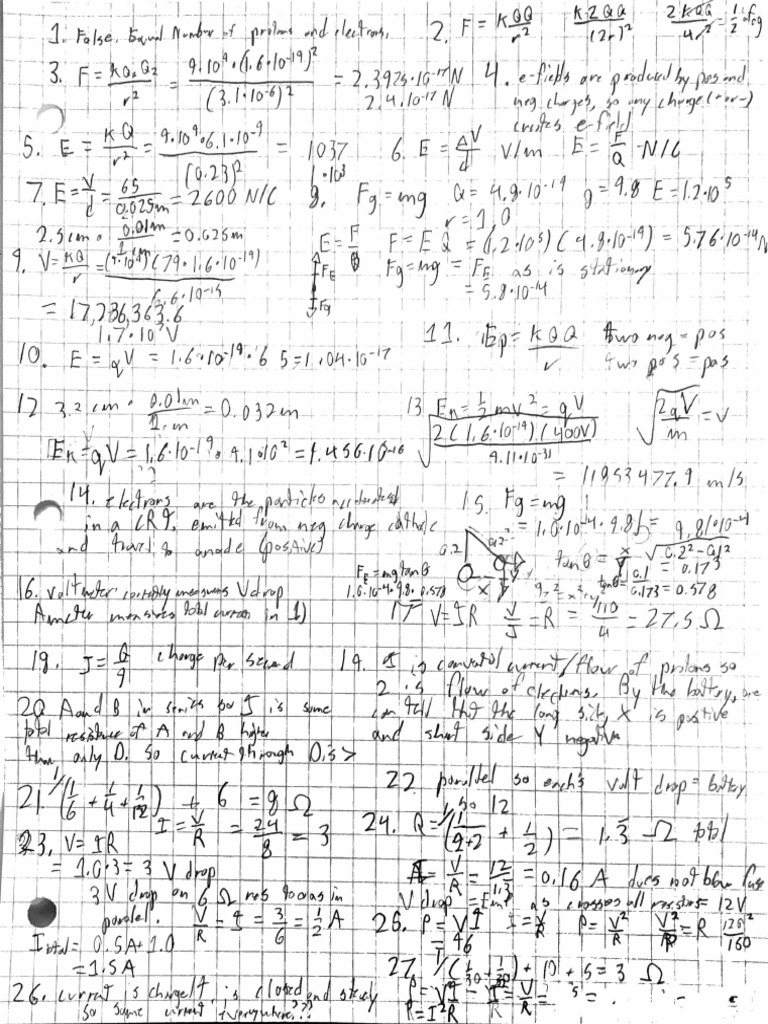 1. False. Equal Number of protons and electrons.
2. F = KQQ/r² K2QQ/(2r)² 2KQQ/4r² = 1/2 of
3. F = KQ₁Q₂/r² = 9·10⁹·(1.6·10⁻¹⁹)²/(3.1·10⁻⁶)² = 2.3975·10⁻¹⁷N
2.4·10⁻¹⁷N
4. e-fields are produced by pos and
neg charges, so any charge (+or-)
creates e-field
5. E = KQ/r² = 9·10⁹·6.1·10⁻⁹/(0.23)² = 1037
1·10³
6. E = ΔV/d V/m E = F/Q N/C
7. E = V/d = 65/0.025m = 2600 N/C
2.5cm · 0.01m/1cm = 0.025m
8. Fg = mg Q = 4.8·10⁻¹⁹ g = 9.8 E = 1.2·10⁵
r = 1.0
E = F/Q F = EQ = (1.2·10⁵)(4.8·10⁻¹⁹) = 5.76·10⁻¹⁴N
Fg = mg = FE as is stationary
= 5.8·10⁻¹⁴
FE
Fg
9. V = KQ/r = (9·10⁹)(79·1.6·10⁻¹⁹)/6.6·10⁻¹⁵
= 17,236,363.6
1.7·10⁷V
10. E = qV = 1.6·10⁻¹⁹·65 = 1.04·10⁻¹⁷
11. Ep = KQQ/r two neg = pos
two pos = pos
12 3.2cm · 0.01m/1cm = 0.032m
Ek = qV = 1.6·10⁻¹⁹·9.1·10² = 1.456·10⁻¹⁶
13 Ek = 1/2 mv² = qV √(2qV/m) = v
√(2(1.6·10⁻¹⁹)(400V)/9.11·10⁻³¹)
= 11853477.9 m/s
14. electrons are the particles accelerated
in a CRT, emitted from neg charge cathode
and travel to anode (positive)
15. Fg = mg
= 1.0·10⁻⁴·9.81 = 9.81·10⁻⁴
0.2
x
tanθ = x/y √(0.2²-0.1²)
= 0.173
tanθ = 0.1/0.173 = 0.578
FE = mg tanθ
1.0·10⁻⁴·9.8·0.578
16. voltmeter correctly measures V drop
Ameter measures total current in 1)
17 V = IR V/I = R = 110/4 = 27.5 Ω
18. I = Q/q charge per second
19. I is conventional current/flow of protons so
2 is flow of electrons. By the battery, one
can tell that the long side, X is positive
and short side Y negative
20 A and B in series so I is same
total resistance of A and B higher
than only D. So current through D is >
21. 1/(1/6 + 1/4 + 1/12) + 6 = 8 Ω
I = V/R = 24/8 = 3
22 parallel so each's volt drop = battery
so 12
23. V = IR
= 1.0·3 = 3 V drop
3V drop on 6 Ω res too as in
parallel. V/R = I = 3/6 = 1/2 A
I total = 0.5A + 1.0
= 1.5A
24. Q = 1/(1/(2+2) + 1/2) = 1.3 Ω total
A = V/R = 12/1.3 = 0.16 A does not blow fuse
V drop = Emf as crosses all resistors = 12V
26. P = VI I = V/R P = V²/R V²/P = R 120²/160
= 46
26. current is charge/t, is closed and steady
so same current everywhere??
27. 1/(1/30 + 1/30) + 10 + 5 = 3 Ω
P = VI I = V/R =
P = I²R